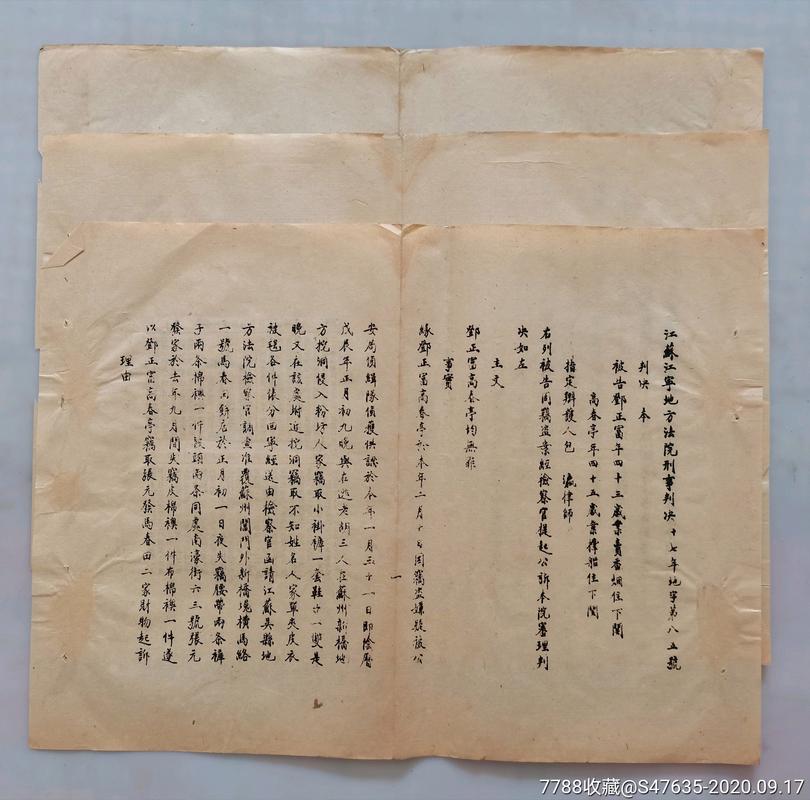 江蘇江寧地方法院刑事判决十七年地字第八五號
判决本
被告鄧正富年四十三歲業賣香烟住下關
高春亭年四十五歲業撑船住下關
指定辯護人包 律師
右列被告因竊盜案經檢察官提起公訴本院審理判
决如左
主文
鄧正富高春亭均無罪
事實
緣鄧正富高春亭於本年二月十 因竊盜嫌疑被公
安局偵緝隊偵獲供認於本年一月三十一日即陰曆
戊辰年正月初九晚與在逃老胡三人在蘇州新橋地
方挖洞侵入粉坊人家竊取小褂褲一套鞋子一雙是
晚又在該處附近挖洞竊取不知姓名人家單夾皮衣
被毯各件俵分回寧經送由檢察官函請江蘇吳縣地
方法院檢察官調查准覆蘇州閶門外新橋堍橫馬路
一號馬春田餅店於正月初一日夜失竊腰帶兩条褲
子兩条棉襖一件 頭兩条同處南濠街六三號張元
發家於去年九月間失竊皮棉襖一件布棉襖一件遂
以鄧正富高春亭竊取張元發馬春田二家財物起訴
理由
7788收藏@S47635-2020.09.17